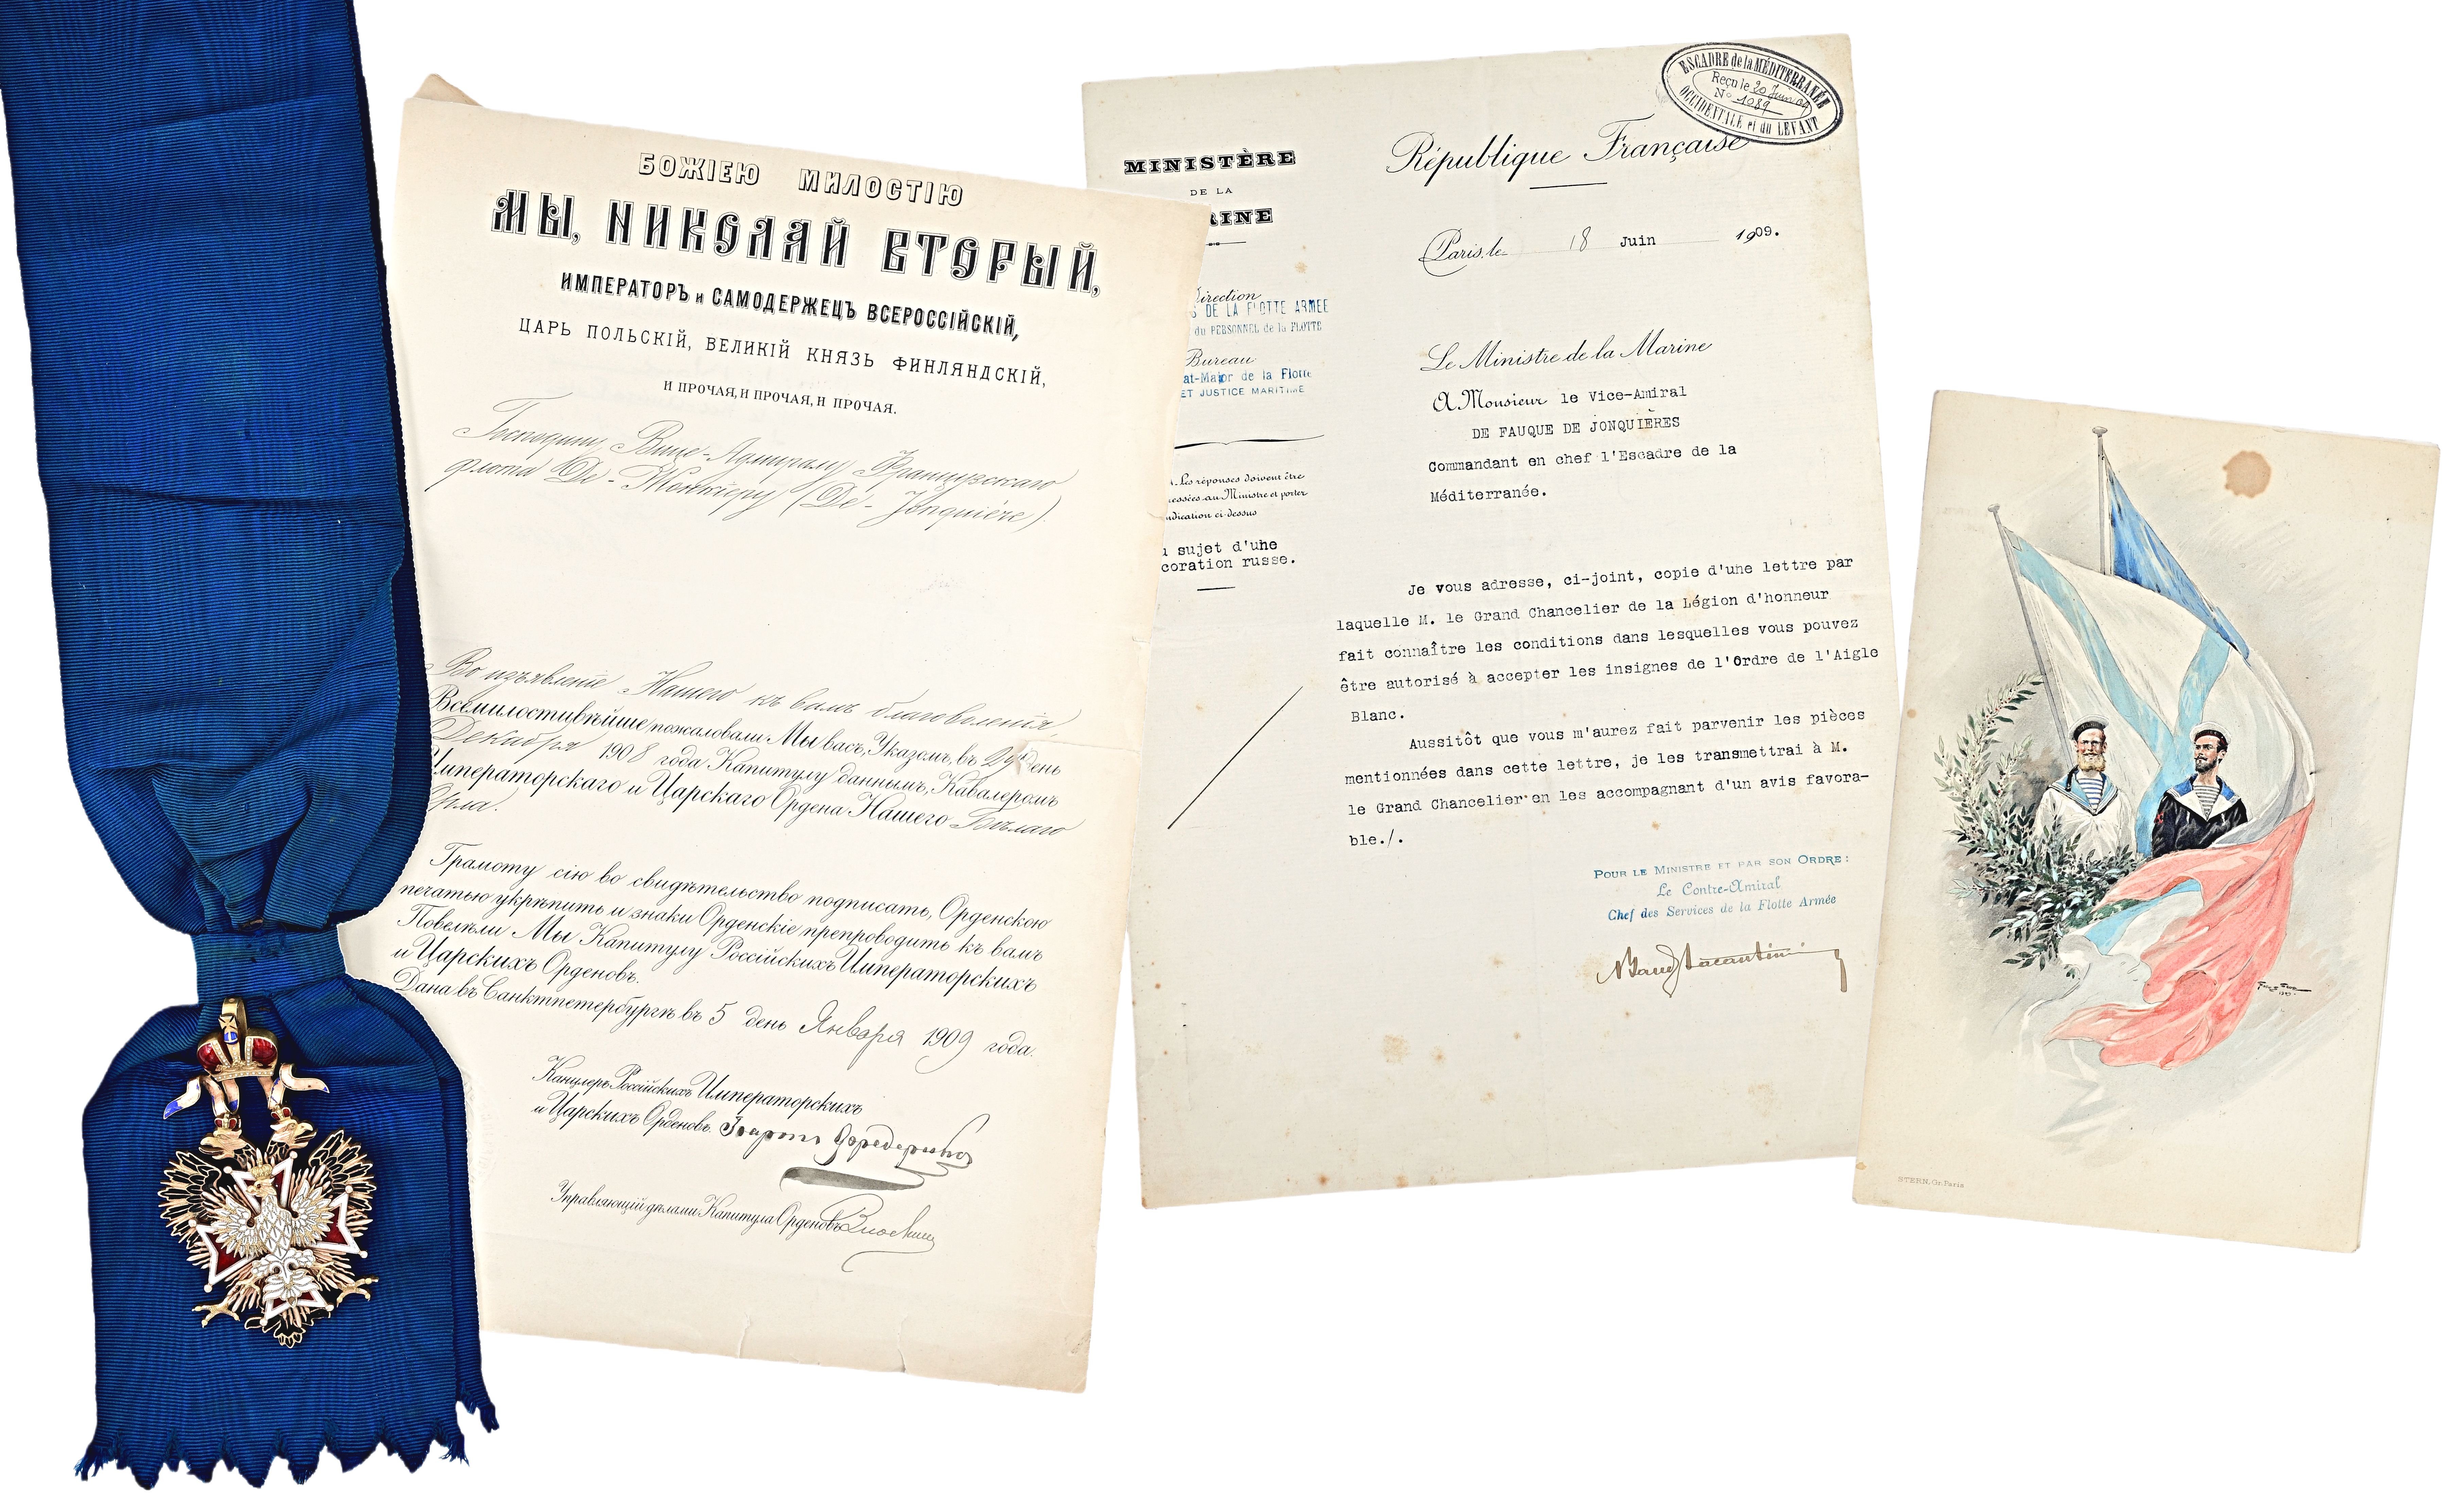 БОЖІЕЮ МИЛОСТІЮ
МЫ, НИКОЛАЙ ВТОРЫЙ,
ИМПЕРАТОРЪ и САМОДЕРЖЕЦЪ ВСЕРОССІЙСКІЙ,
ЦАРЬ ПОЛЬСКІЙ, ВЕЛИКІЙ КНЯЗЬ ФИНЛЯНДСКІЙ,
И ПРОЧАЯ, И ПРОЧАЯ, И ПРОЧАЯ.
Господину Вице-Адмиралу Французскаго
флота Де-Жонкіеру (De-Jonquière).
Во изъявленіе Нашего къ вамъ благоволенія,
Всемилостивѣйше пожаловали Мы васъ, Указомъ, въ день
Декабря 1908 года Капитулу даннымъ, Кавалеромъ
Императорскаго и Царскаго Ордена Нашего Бѣлаго
Орла.
Грамоту сію во свидѣтельство подписать, Орденскою
печатью укрѣпить и знаки Орденскіе препроводить къ вамъ
Повелѣли Мы Капитулу Россійскихъ Императорскихъ
и Царскихъ Орденовъ.
Дана въ Санктпетербургѣ въ 5 день Января 1909 года.
Канцлеръ Россійскихъ Императорскихъ
и Царскихъ Орденовъ. Баронъ Фредериксъ
Управляющій дѣлами Капитула Орденовъ
ESCADRE de la MÉDITERRANÉE
Reçu le 20 Juin 09
N° 1089
OCCIDENTALE et du LEVANT
MINISTÈRE
DE LA
RINE
République Française
Paris, le 18 Juin 1909.
irection
S DE LA FLOTTE ARMÉE
du PERSONNEL de la FLOTTE
Bureau
at-Major de la Flotte
ET JUSTICE MARITIME
. Les réponses doivent être
essées au Ministre et porter
ndication ci-dessus
u sujet d'une
coration russe.
Le Ministre de la Marine
A Monsieur le Vice-Amiral
DE FAUQUE DE JONQUIÈRES
Commandant en chef l'Escadre de la
Méditerranée.
Je vous adresse, ci-joint, copie d'une lettre par
laquelle M. le Grand Chancelier de la Légion d'honneur
fait connaître les conditions dans lesquelles vous pouvez
être autorisé à accepter les insignes de l'Ordre de l'Aigle
Blanc.
Aussitôt que vous m'aurez fait parvenir les pièces
mentionnées dans cette lettre, je les transmettrai à M.
le Grand Chancelier en les accompagnant d'un avis favora-
ble./.
POUR LE MINISTRE ET PAR SON ORDRE:
Le Contre-Amiral
Chef des Services de la Flotte Armée
STERN. Gr. Paris